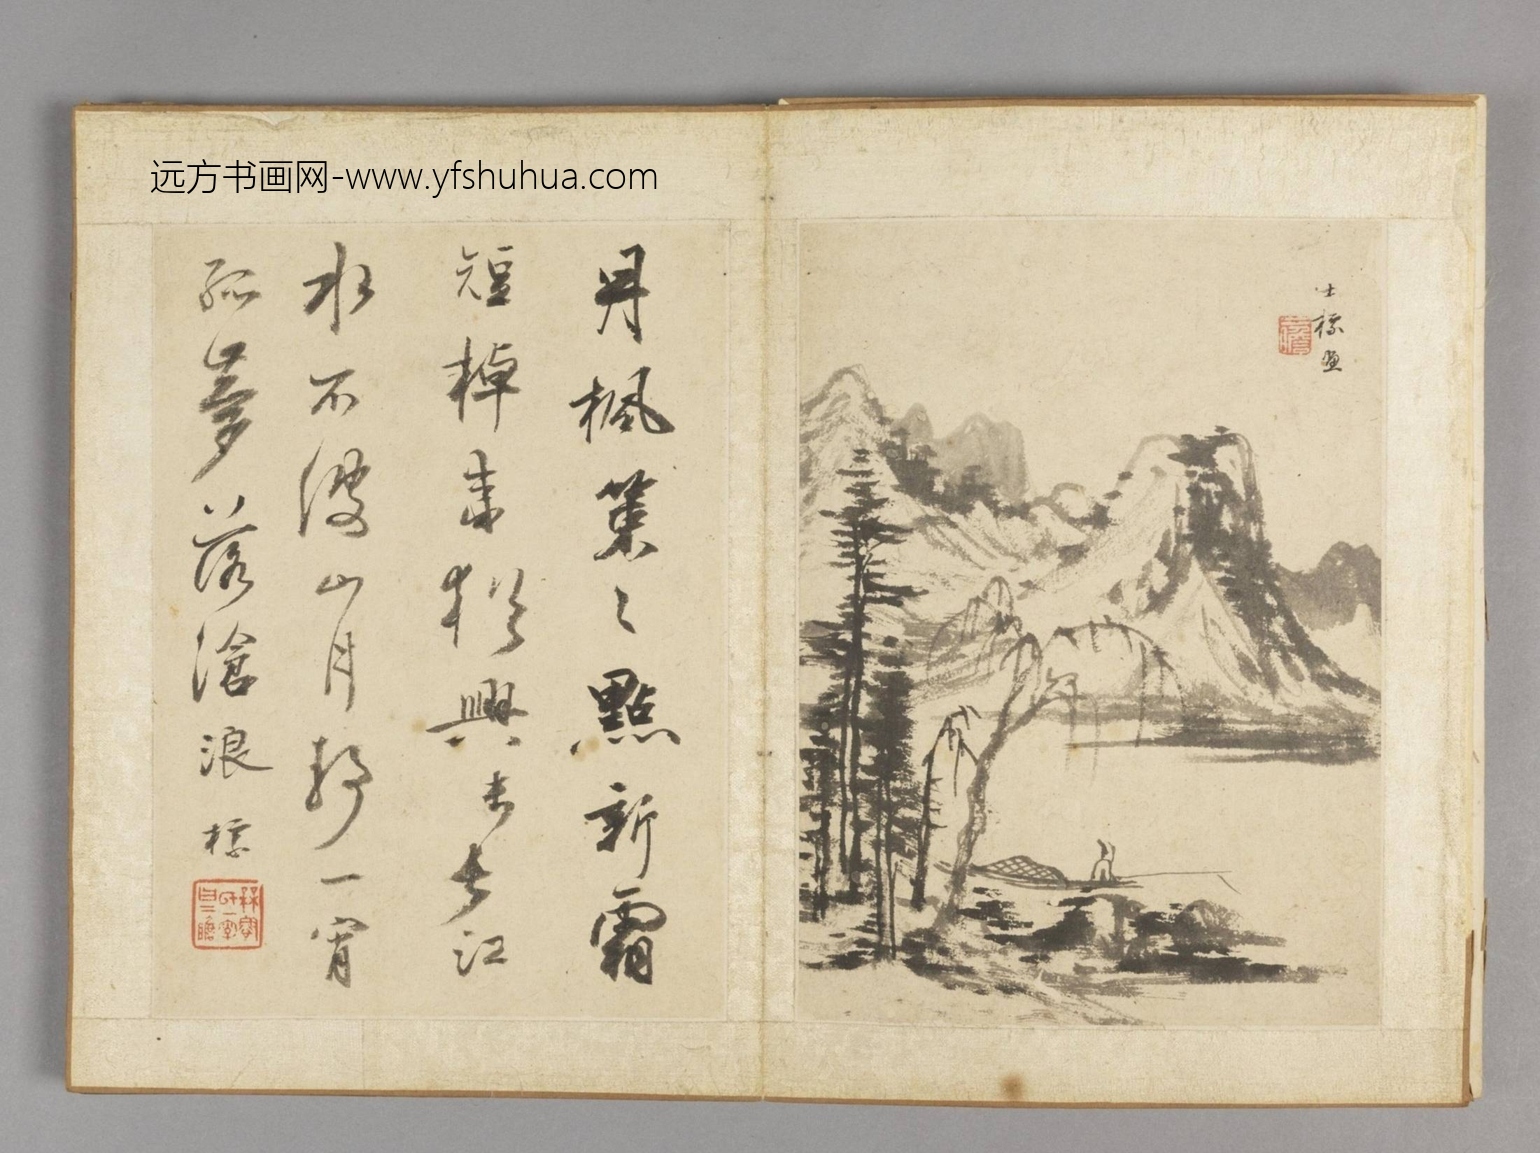 远方书画网-www.yfshuhua.com
士標畫
丹楓葉〻點新霜
短棹興長江
水不波山月靜一宵
孤夢落滄浪 標